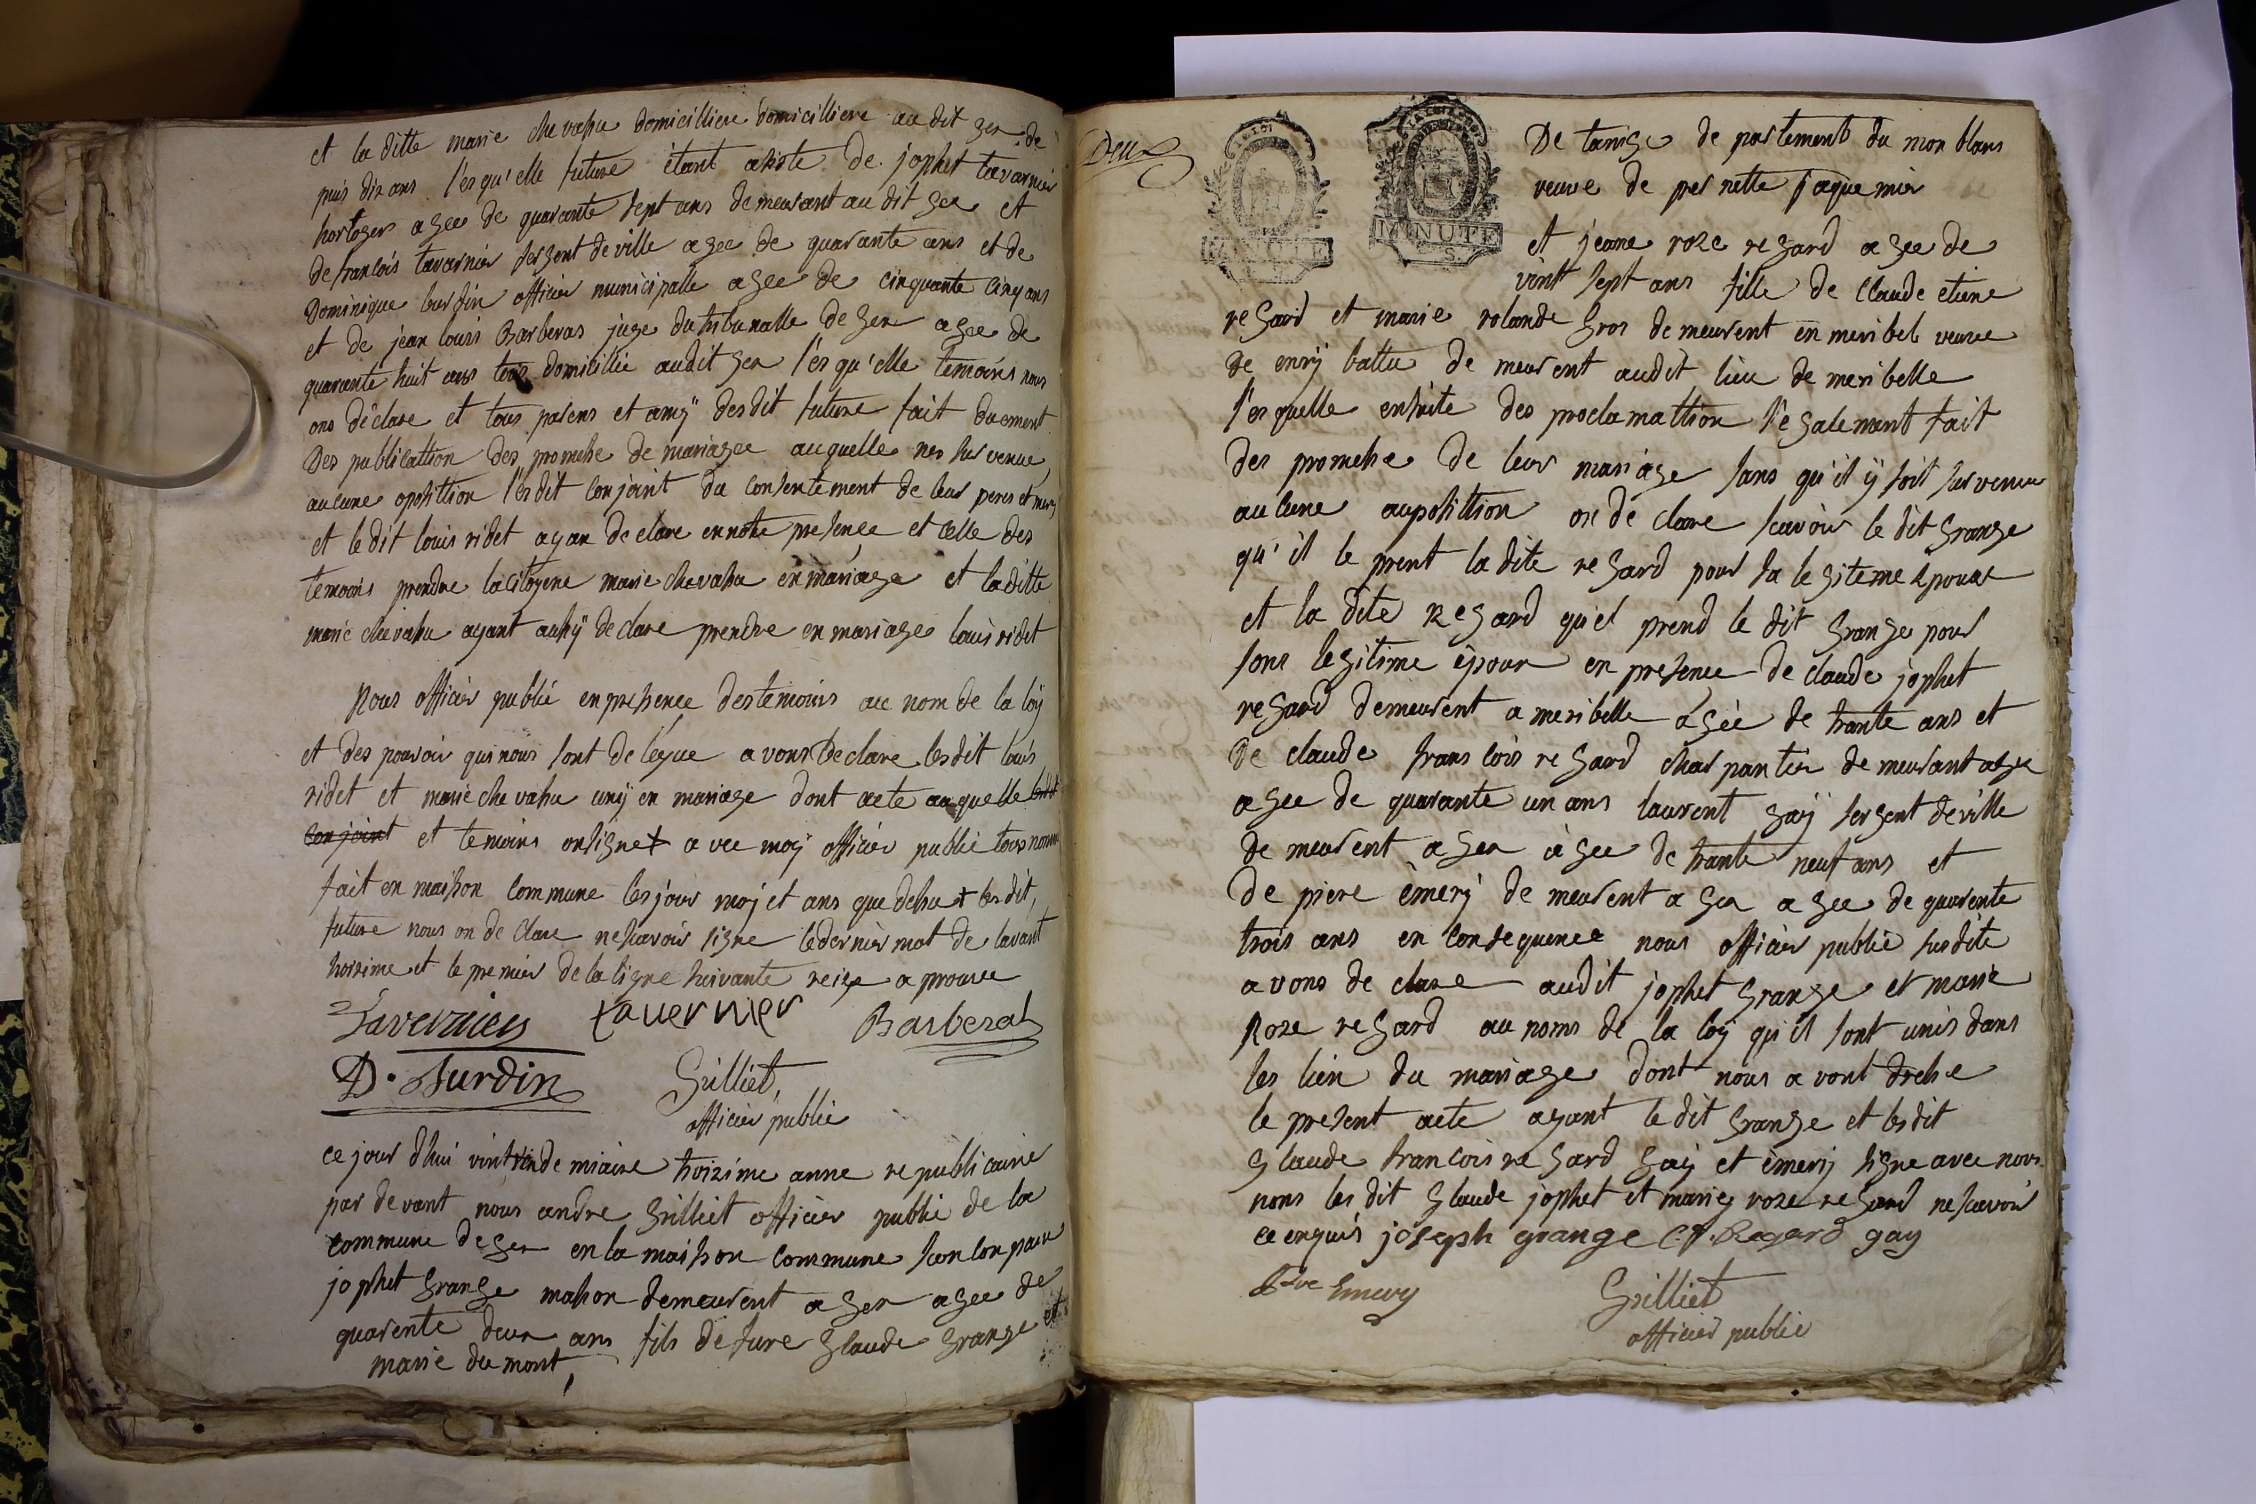 et la ditte marie chevahu domicilliere domicilliere au dit gex de
puis dix ans les qu'elle future étant asisté de jophet tavarnier
horloger agee de quarante sept ans demeurant au dit gex et
de francois tavarnier sergent de ville agee de quarante ans et de
Dominique burdin officier municipalle agee de cinquante cinq ans
et de jean louis Barberas juge du tribunalle de gex agee de
quarante huit ans tous domicillié audit gex les qu'elle temoins nous
ons déclare et tous parens et amÿ des dit future fait duement
Des publicattion des promesse de mariagee auquelle nes survenue
aucune oposittion les dit conjoint du consentement de leur peres et meres
et le dit louis ridet ayan declare en notre presence et celle des
temoins prendre la citoyene marie chevahu en mariage et la ditte
marie chevahu ayant aussÿ declare prendre en mariage louis ridet
Nous officier publié en presence des temoins au nom de la loÿ
et des pouvoir qui nous sont de léguè avons declare lesdit louis
ridet et marie chevahu unÿ en mariage dont acte auquelle lesdit
conjoint et temoins on signe + avec moÿ officier publié tous nomme
fait en maison commune les jour moj et ans que desu + les dit
future nous on de clare ne savoir signe le dernier mot de lavant
hoisime et le premier de la ligne suivante reiye aprouve
Tavernier tavernier Barberat
D. Burdin Grilliet,
officier publié
ce jour d'hui vint vindemiaire troizime anne republicaine
par devant nous andre Grilliet officier publié de la
commune de gex en la maison commune son conparu
jophet grange mason demeurent a gex agee de
quarente deux ans fils de fure glaude grange et
marie dumont,
Deux
MINUTE
MINUTE
De taninge departement du mon blans
veuve de pernette jaquemier
et jeane roze regard agee de
vint sept ans fille de claude etiene
regard et marie rolande gros demeurent en meribel veuve
de enrÿ battu demeurent audit lieu de meribelle
les quelle ensuite des proclamattion légalement fait
des promesse de leur mariage sans qu'il ÿ soit survenu
aucune auposittion on dé clare savoir le dit grange
qu'il le prent la dite regard pour sa legiteme épouse
et la dite Regard quel prend le dit grange pour
sons legitime époux en presence de claude jophet
regard demeurent a meribelle agèe de trante ans et
de claude francois regard charpantier demeurant a gex
agee de quarante un ans laurent gaÿ sergent de ville
demeurent a gex agee de trante neuf ans et
de piere èmerÿ demeurent a gex agee de quarente
trois ans en consequence nous officier publié susdite
avons declare audit jophet grange et marie
Roze regard au noms de la loÿ qu'il sont unis dans
les lien du mariage dont nous avont drese
le present acte ayant le dit grange et lesdit
glaude francois regard gaÿ et èmerÿ signe avec nous
nons les dit glaude jophet et marie roze regard ne savoir
ce enquis joseph grange C. f. Regard gay
Pre Emery Grilliet
officier publié